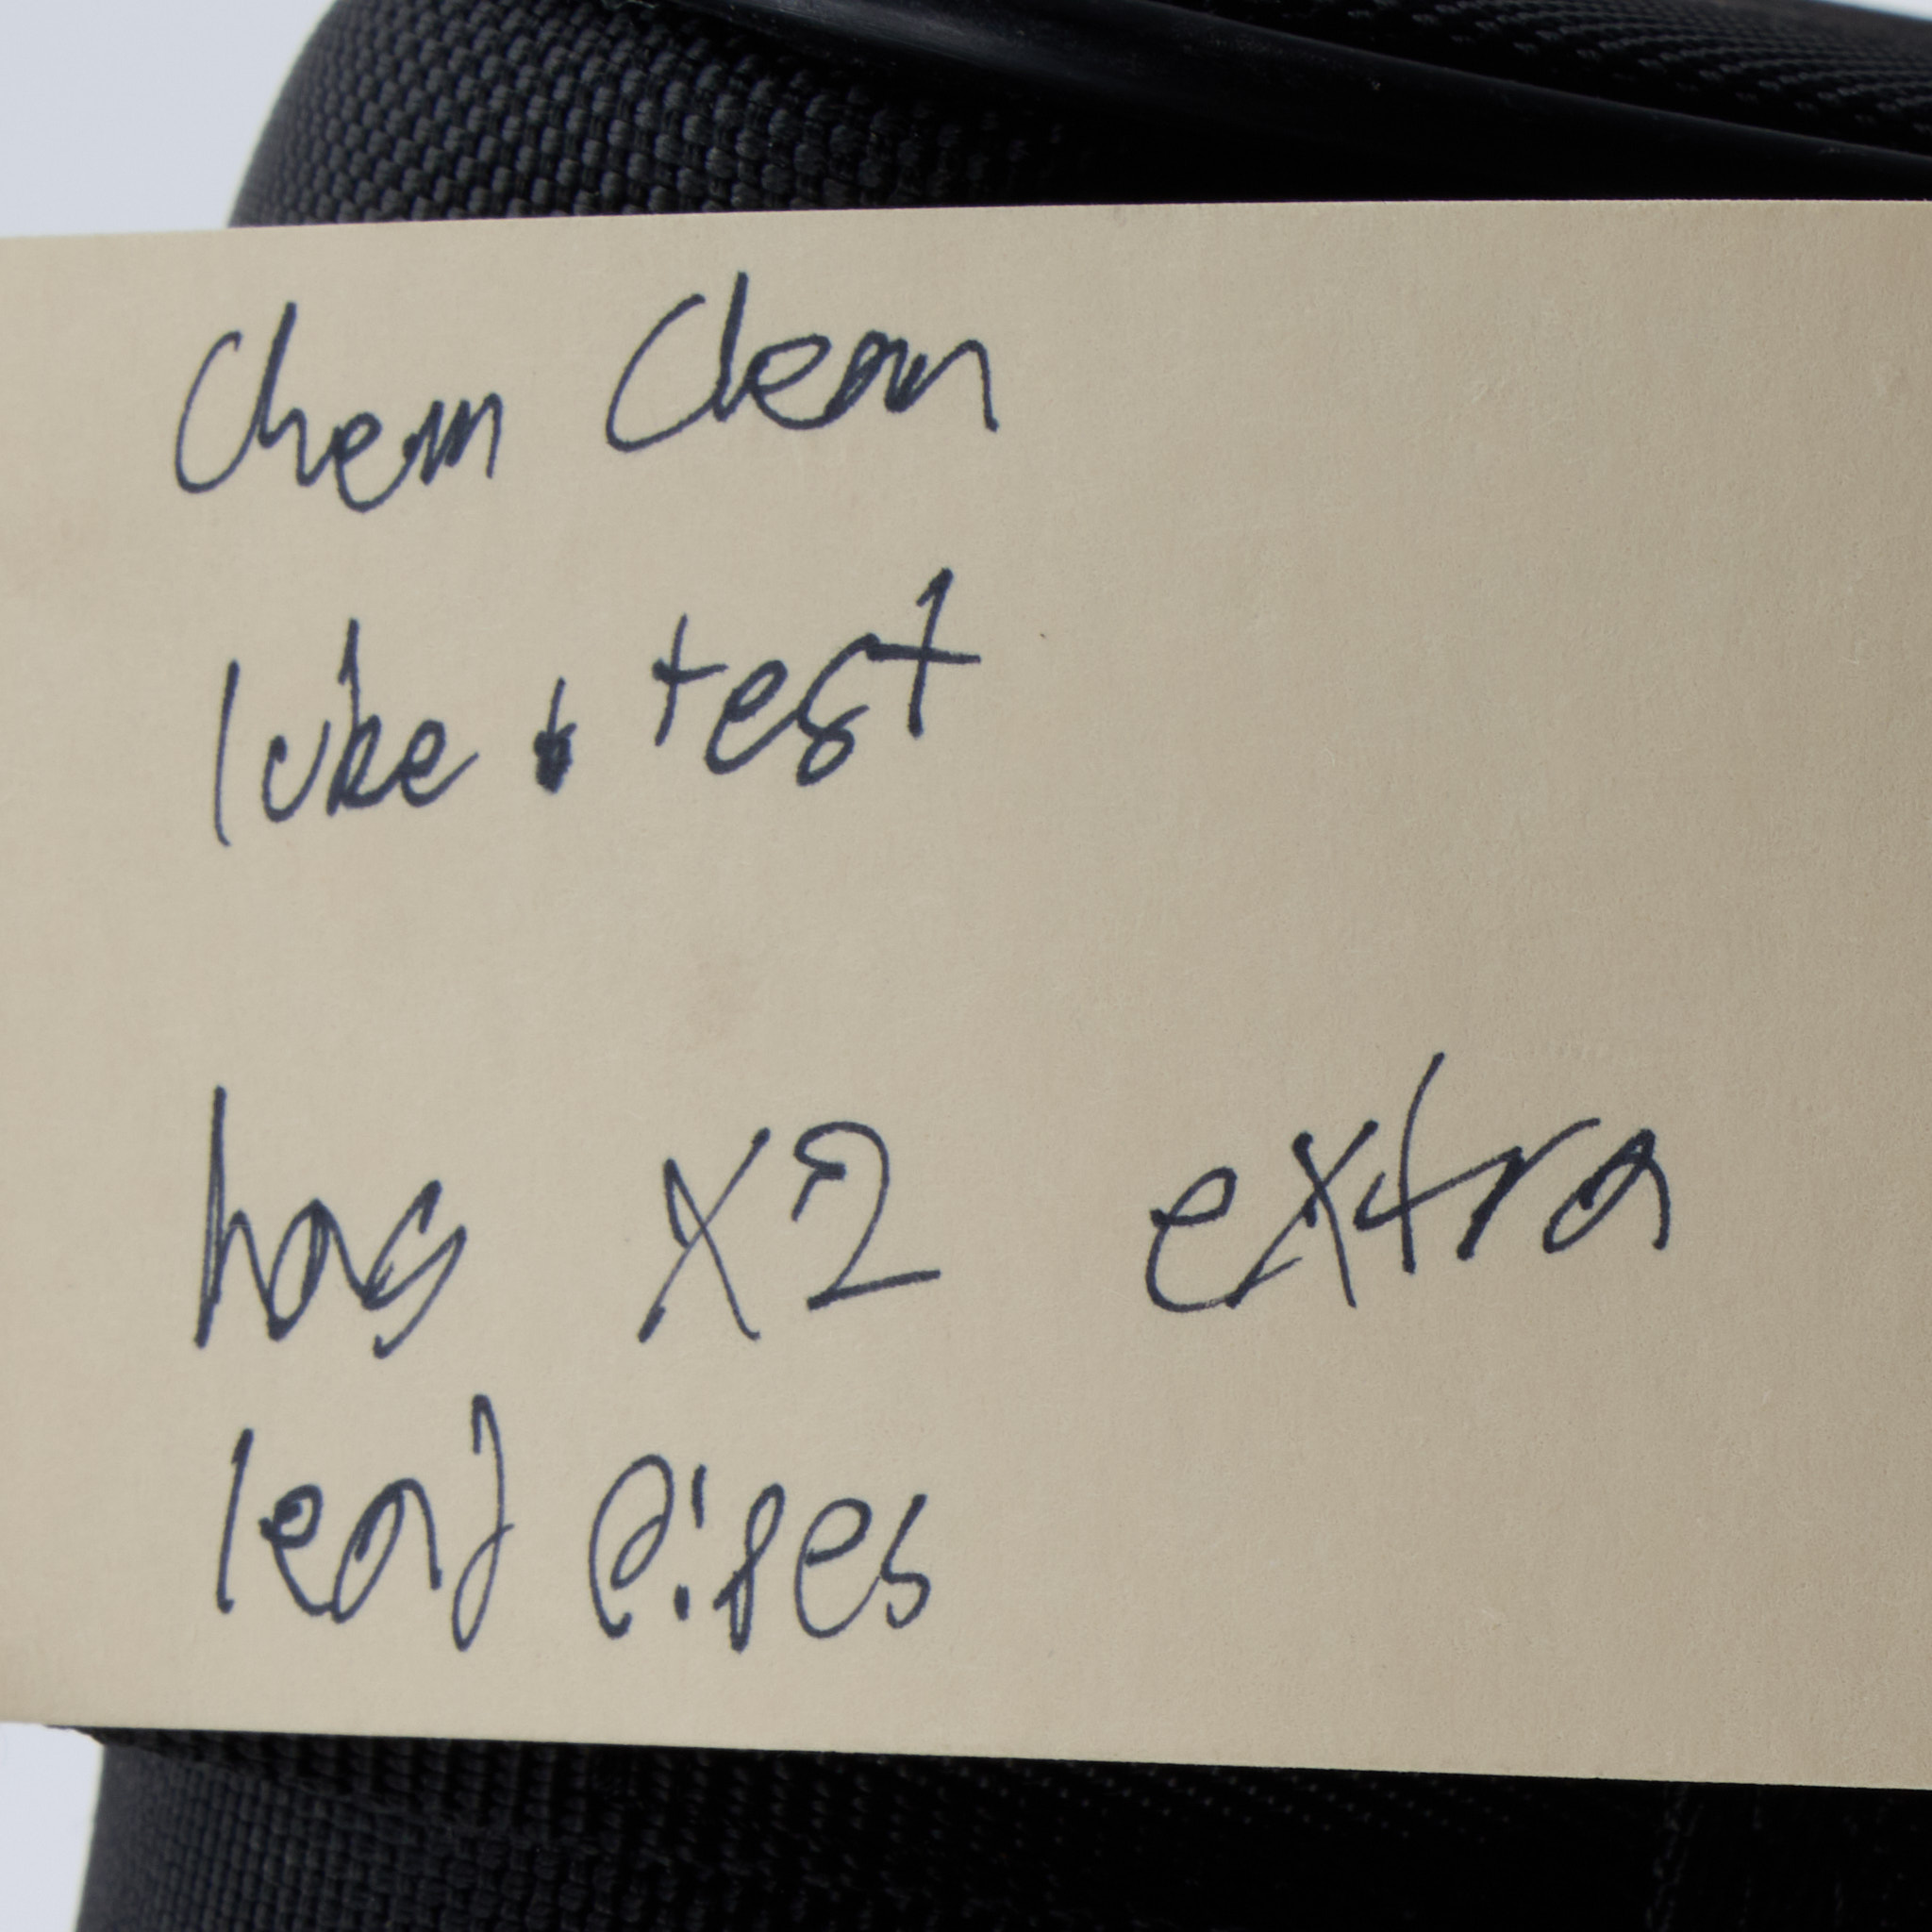 Chem Clean
lube & test
has x2 extra
lead pipes